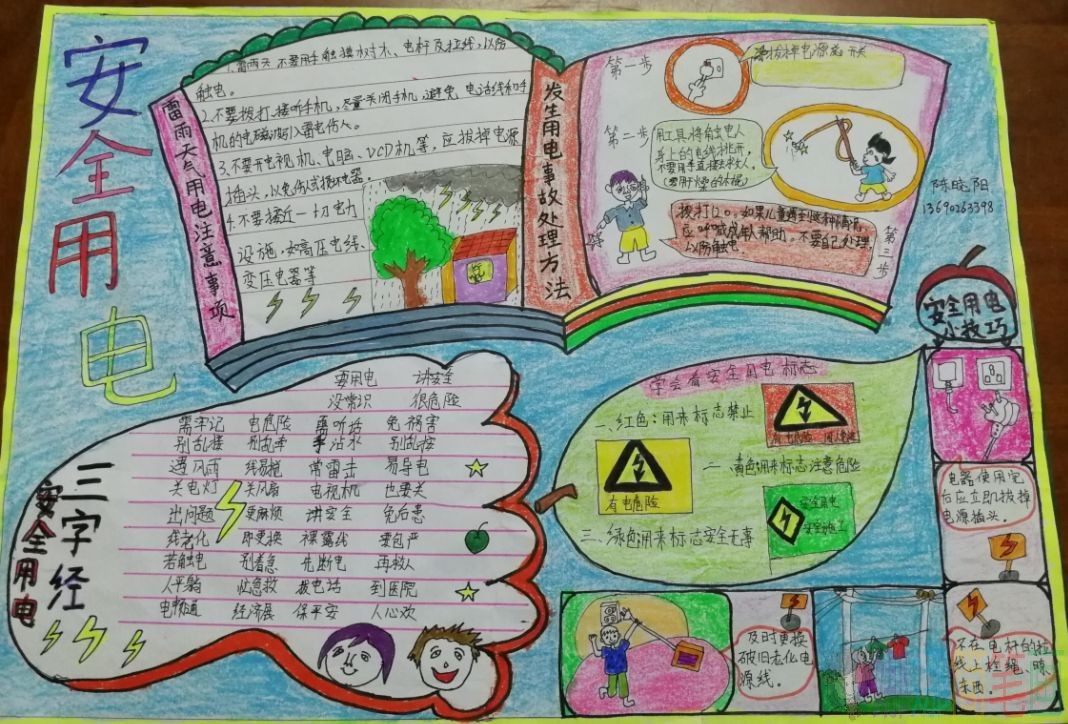 安全用电
雷雨天气用电注意事项
1.雷雨天,不要用手触摸树木、电杆及拉线,以防
触电。
2.不要拨打、接听手机,尽量关闭手机,避免 电话线和手
机的电磁波引入雷电伤人。
3.不要开电视机、电脑、VCD机等,应拔掉电源
插头,以免伤或损坏电器。
4.不要接近一切电力
设施,如高压电线、
变压电器等
发生用电事故处理方法
第一步
第二步
用工具将触电人
身上的电线挑开,
不要用手直接去救人。
第三步
应呼喊成年人帮助。不要自己处理,
以防触电。
陈晓阳
13690263398
安全用电
小技巧
三字经
安全用电
要用电 讲安全
没常识 很危险
需牢记 电危险 离听话 免祸害
别乱接 别乱牵 手沾水 别乱接
遇风雨 线易摇 常雷击 易导电
关电灯 关风扇 电视机 也要关
出问题 更麻烦 讲安全 免后患
线老化 即更换 裸露线 要包严
若触电 别着急 先断电 再救人
人平躺 忙急救 拨电话 到医院
电畅通 经济展 保平安 人心欢
学会看安全用电标志
一、红色:用来标志禁止
二、黄色:用来标志注意危险
有电危险
三、绿色用来标志安全无事
电器使用完
后应立即拔掉
电源插头。
及时更换
破旧老化电
源线。
不在电杆的拉
线上拴绳、晾
东西。